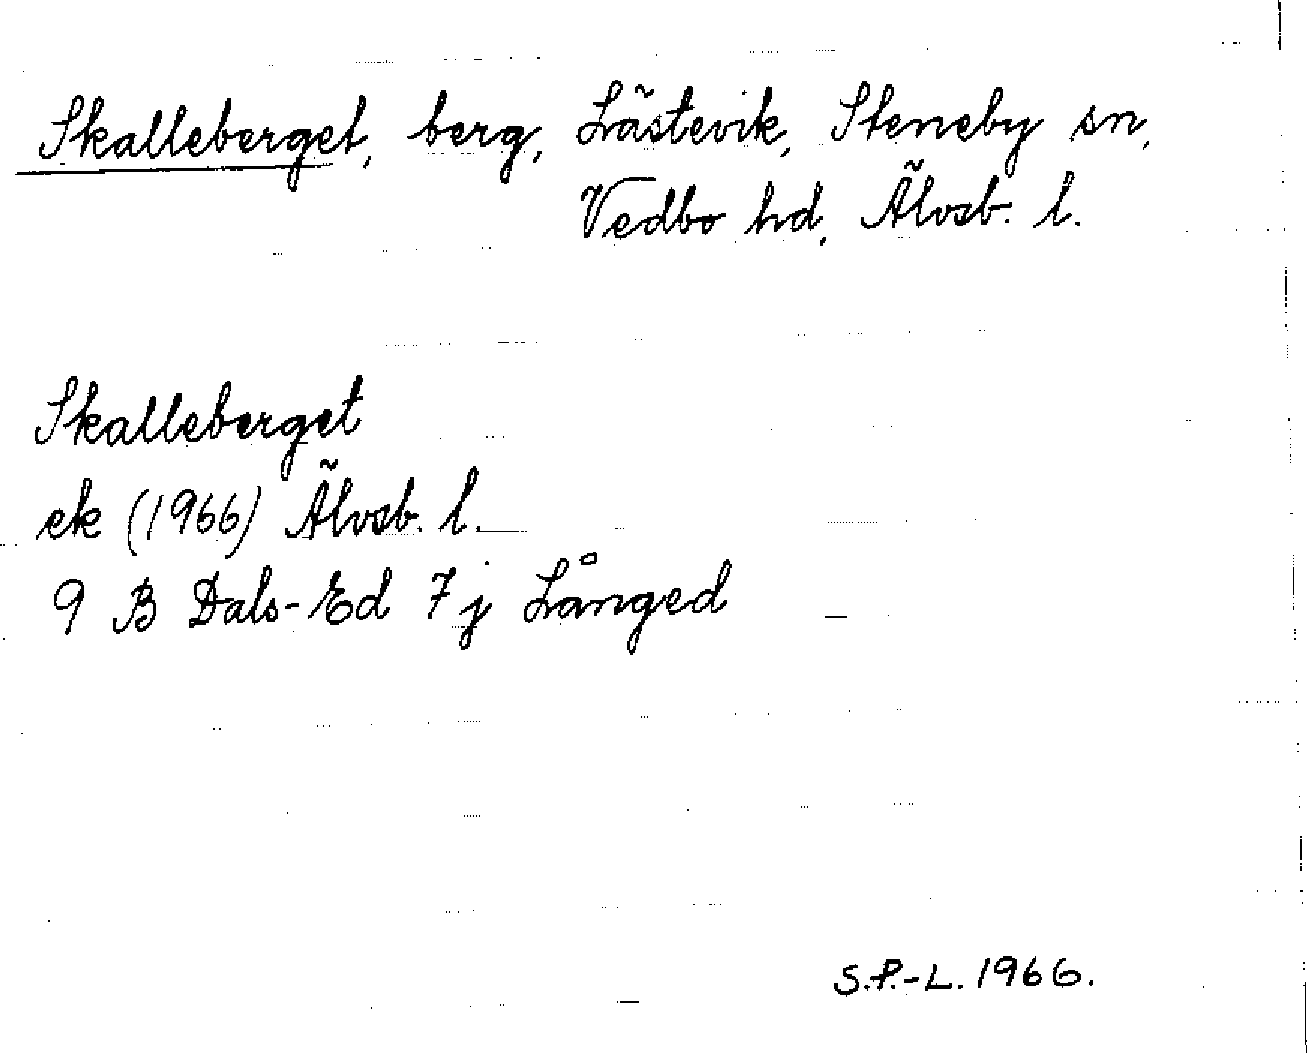 Skalleberget, berg, Lästevik, Steneby sn,
Vedbo hd, Älvsb. l.
Skalleberget
ek (1966) Älvsb. l.
9 B Dals-Ed 7j Långed
S.P.-L. 1966.